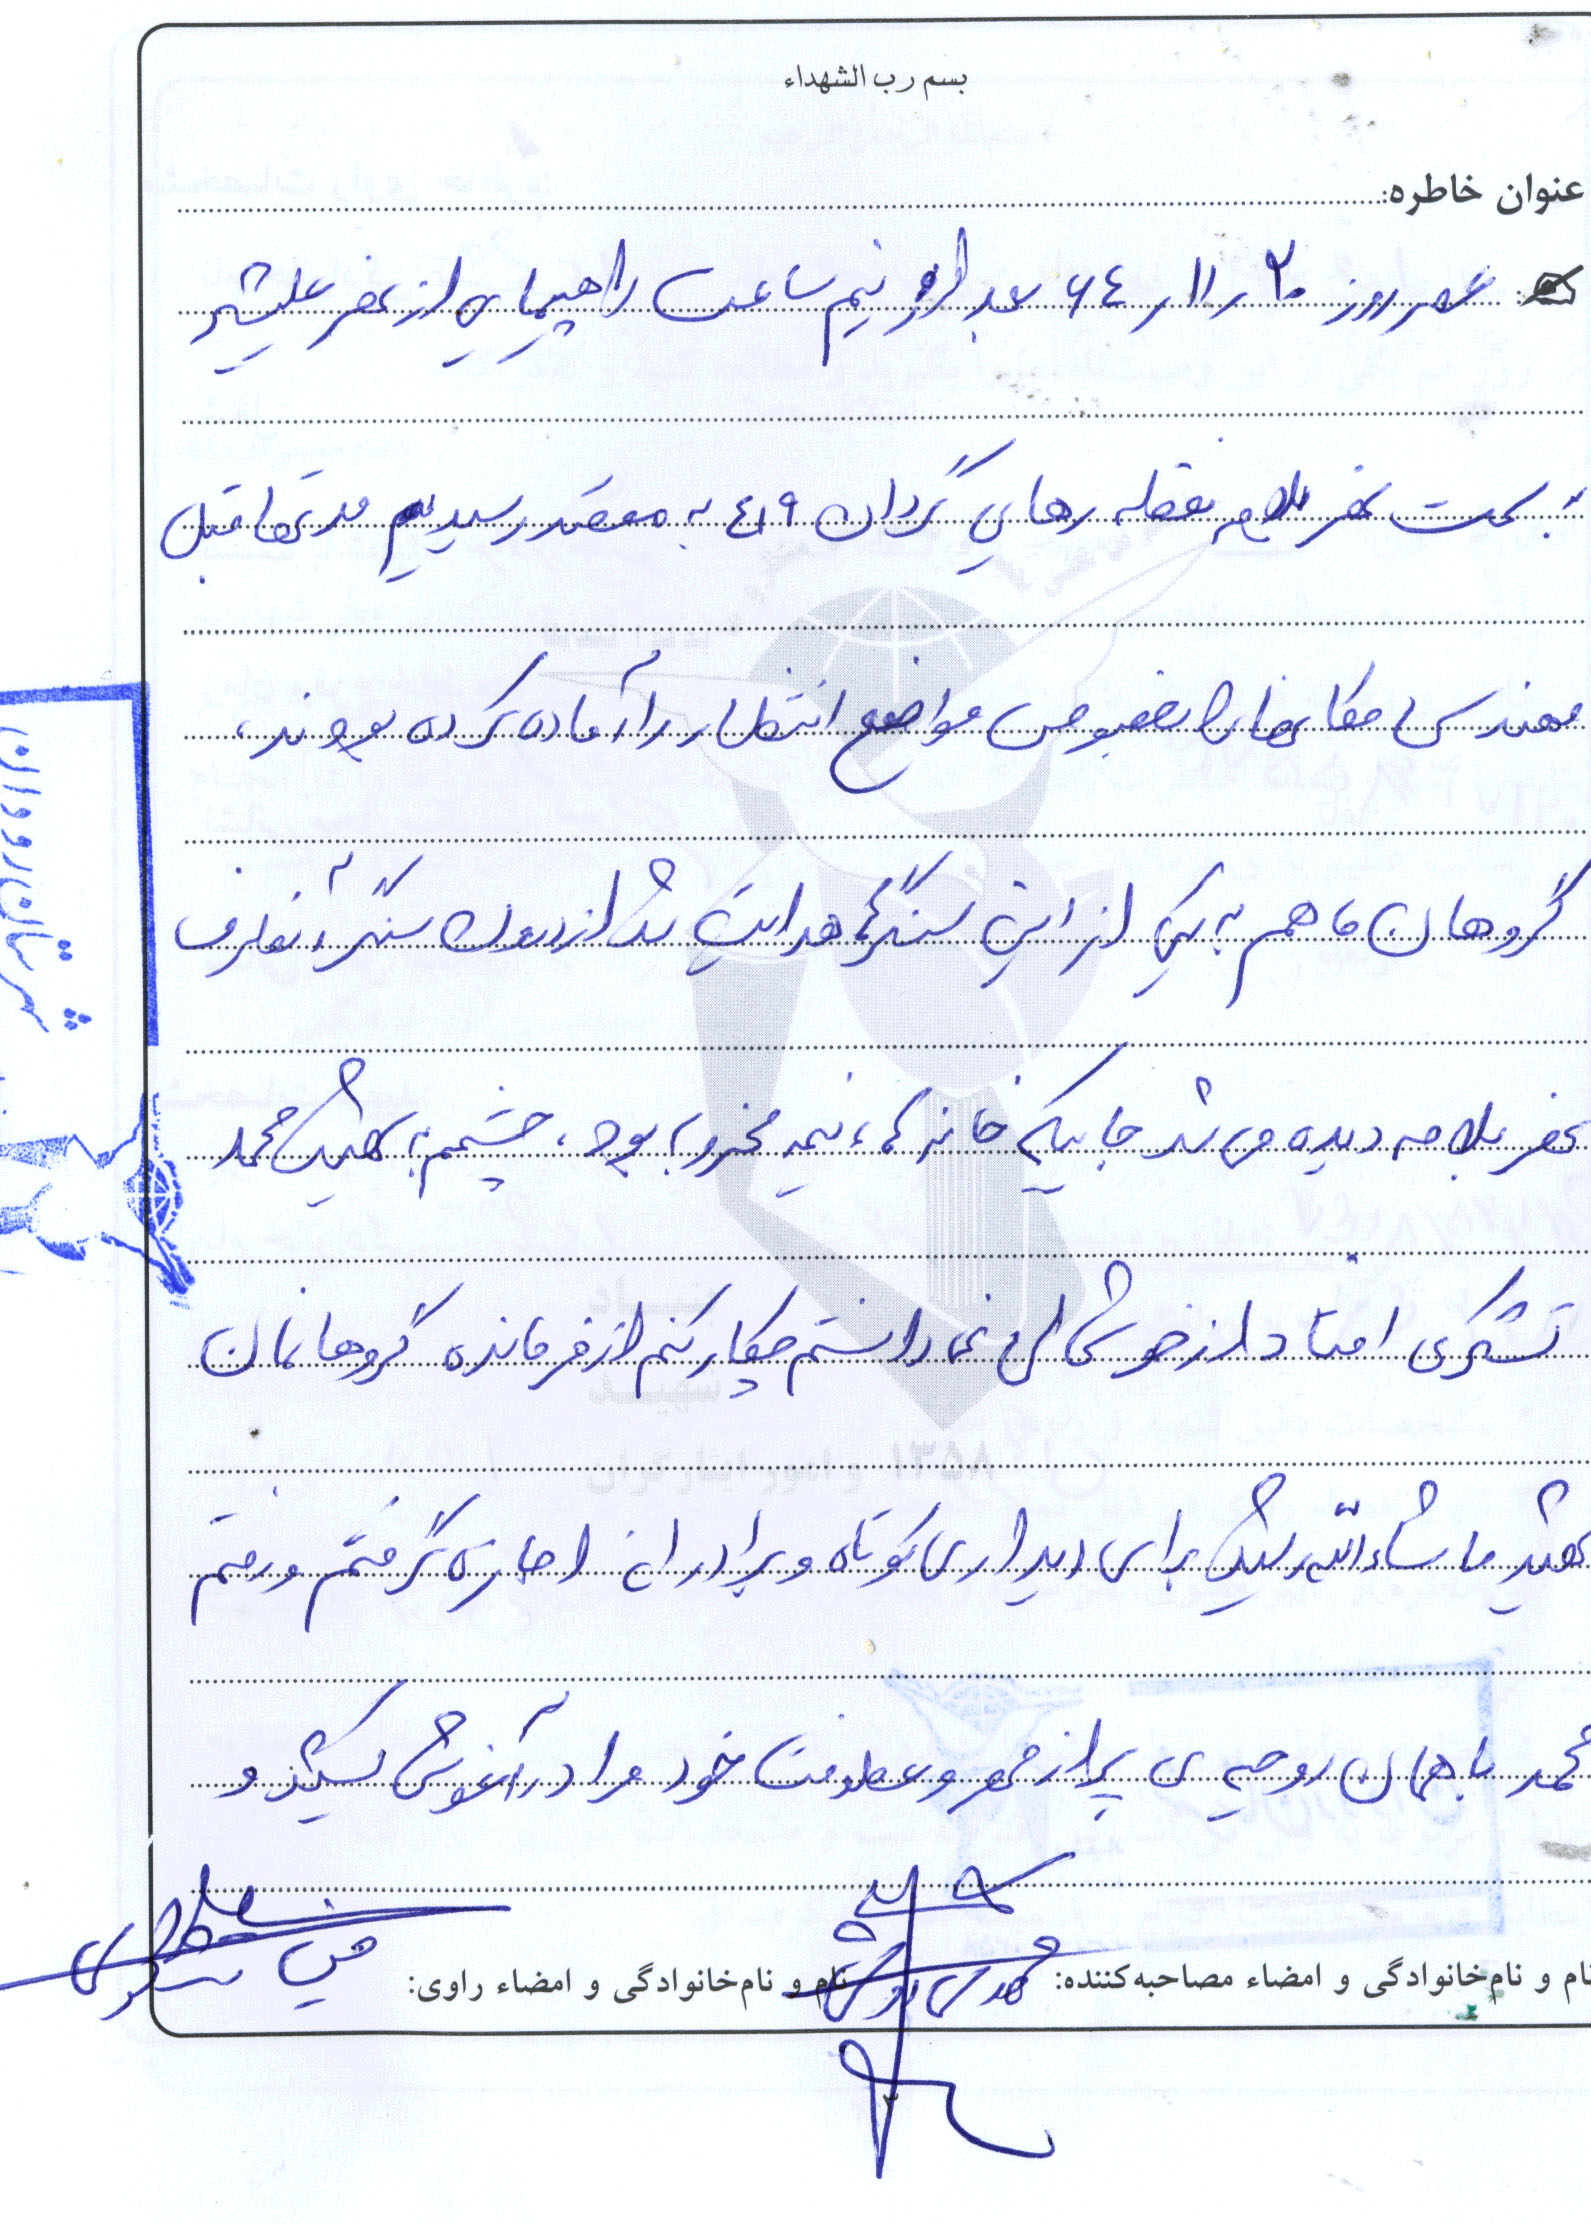 بسم رب الشهداء
عنوان خاطره:
عصر روز ۲۰ ر ۱۱ ر ۶۴ بعد از نیم ساعت راهپیمایی از نهر علیشیر
به سمت نهر بلامه نقطه رهایی گردان ۴۱۹ به مقصد رسیدیم مدتها قبل
مهندسی مکانهای بخصوص مواضع انتظار را آماده کرده بودند،
گروهان ما هم به یکی از این سنگرها هدایت شد از درون سنگر آنطرف
نهر بلامه دیده می شد جاییکه خانه های نیمه مخروبه بود، چشمم به شهید محمد
تشکری افتاد از خوشحالی نمی دانستم چکار کنم از فرمانده گروهانمان
شهید ماشاءالله رشیدی برای دیداری کوتاه و برادرانه اجازه گرفتم و رفتم
محمد با همان روحیه ی پر از مهر و عطوفت خود مرا در آغوش کشید و
نام و نام‌خانوادگی و امضاء مصاحبه‌کننده:
نام و نام‌خانوادگی و امضاء راوی:
۱۳۵۸
و امور ایثارگران